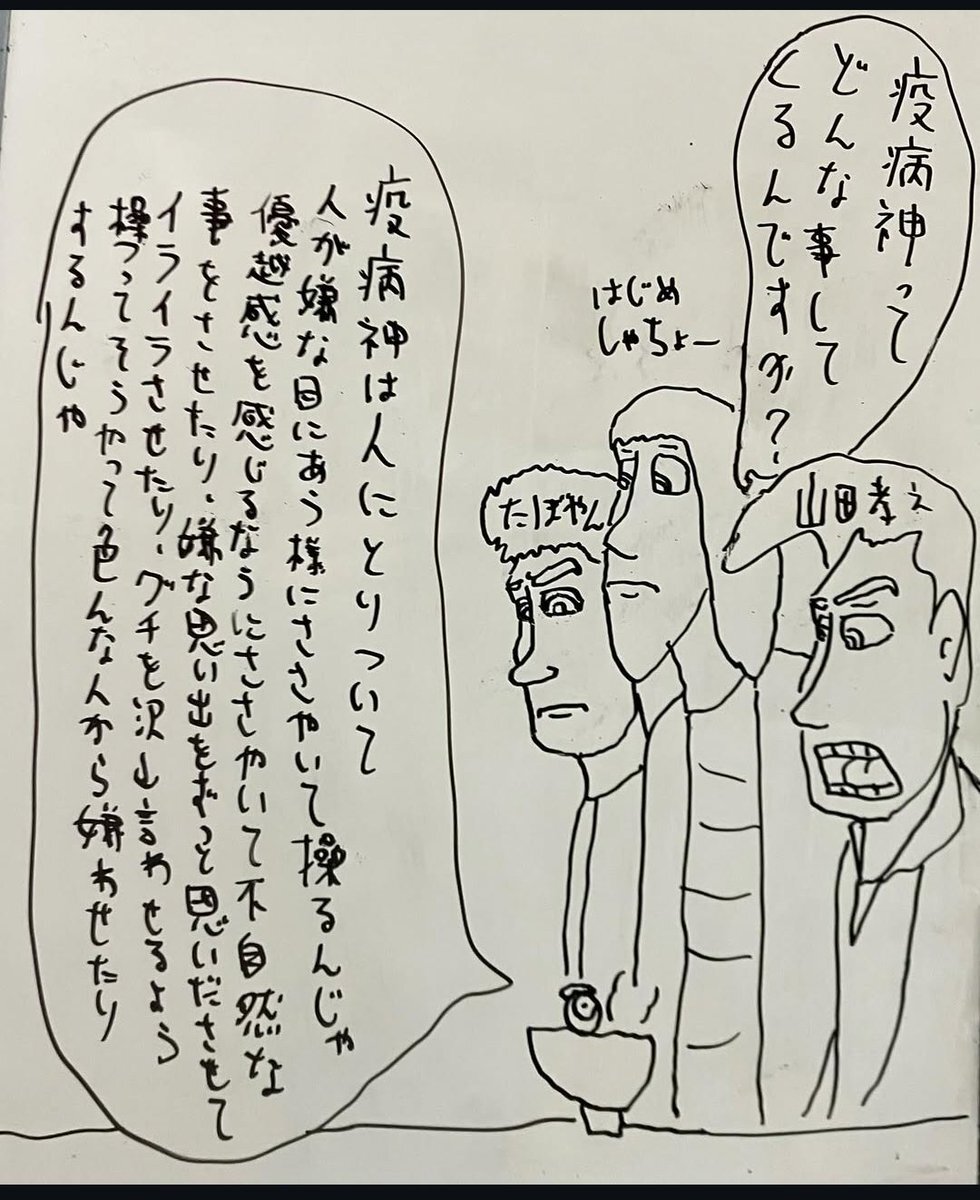 疫病神って
どんな事して
くるんですか?
はじめ
しゃちょー
山田孝之
たばやん
疫病神は人にとりついて
人が嫌な目にあう様にささやいて操るんじゃ
優越感を感じるなうにささやいて不自然な
事をさせたり、嫌な思い出をずっと思いださせて
イライラさせたり、グチを沢山言わせるよう
操ってそうやって色んな人から嫌わせたり
するんじゃ